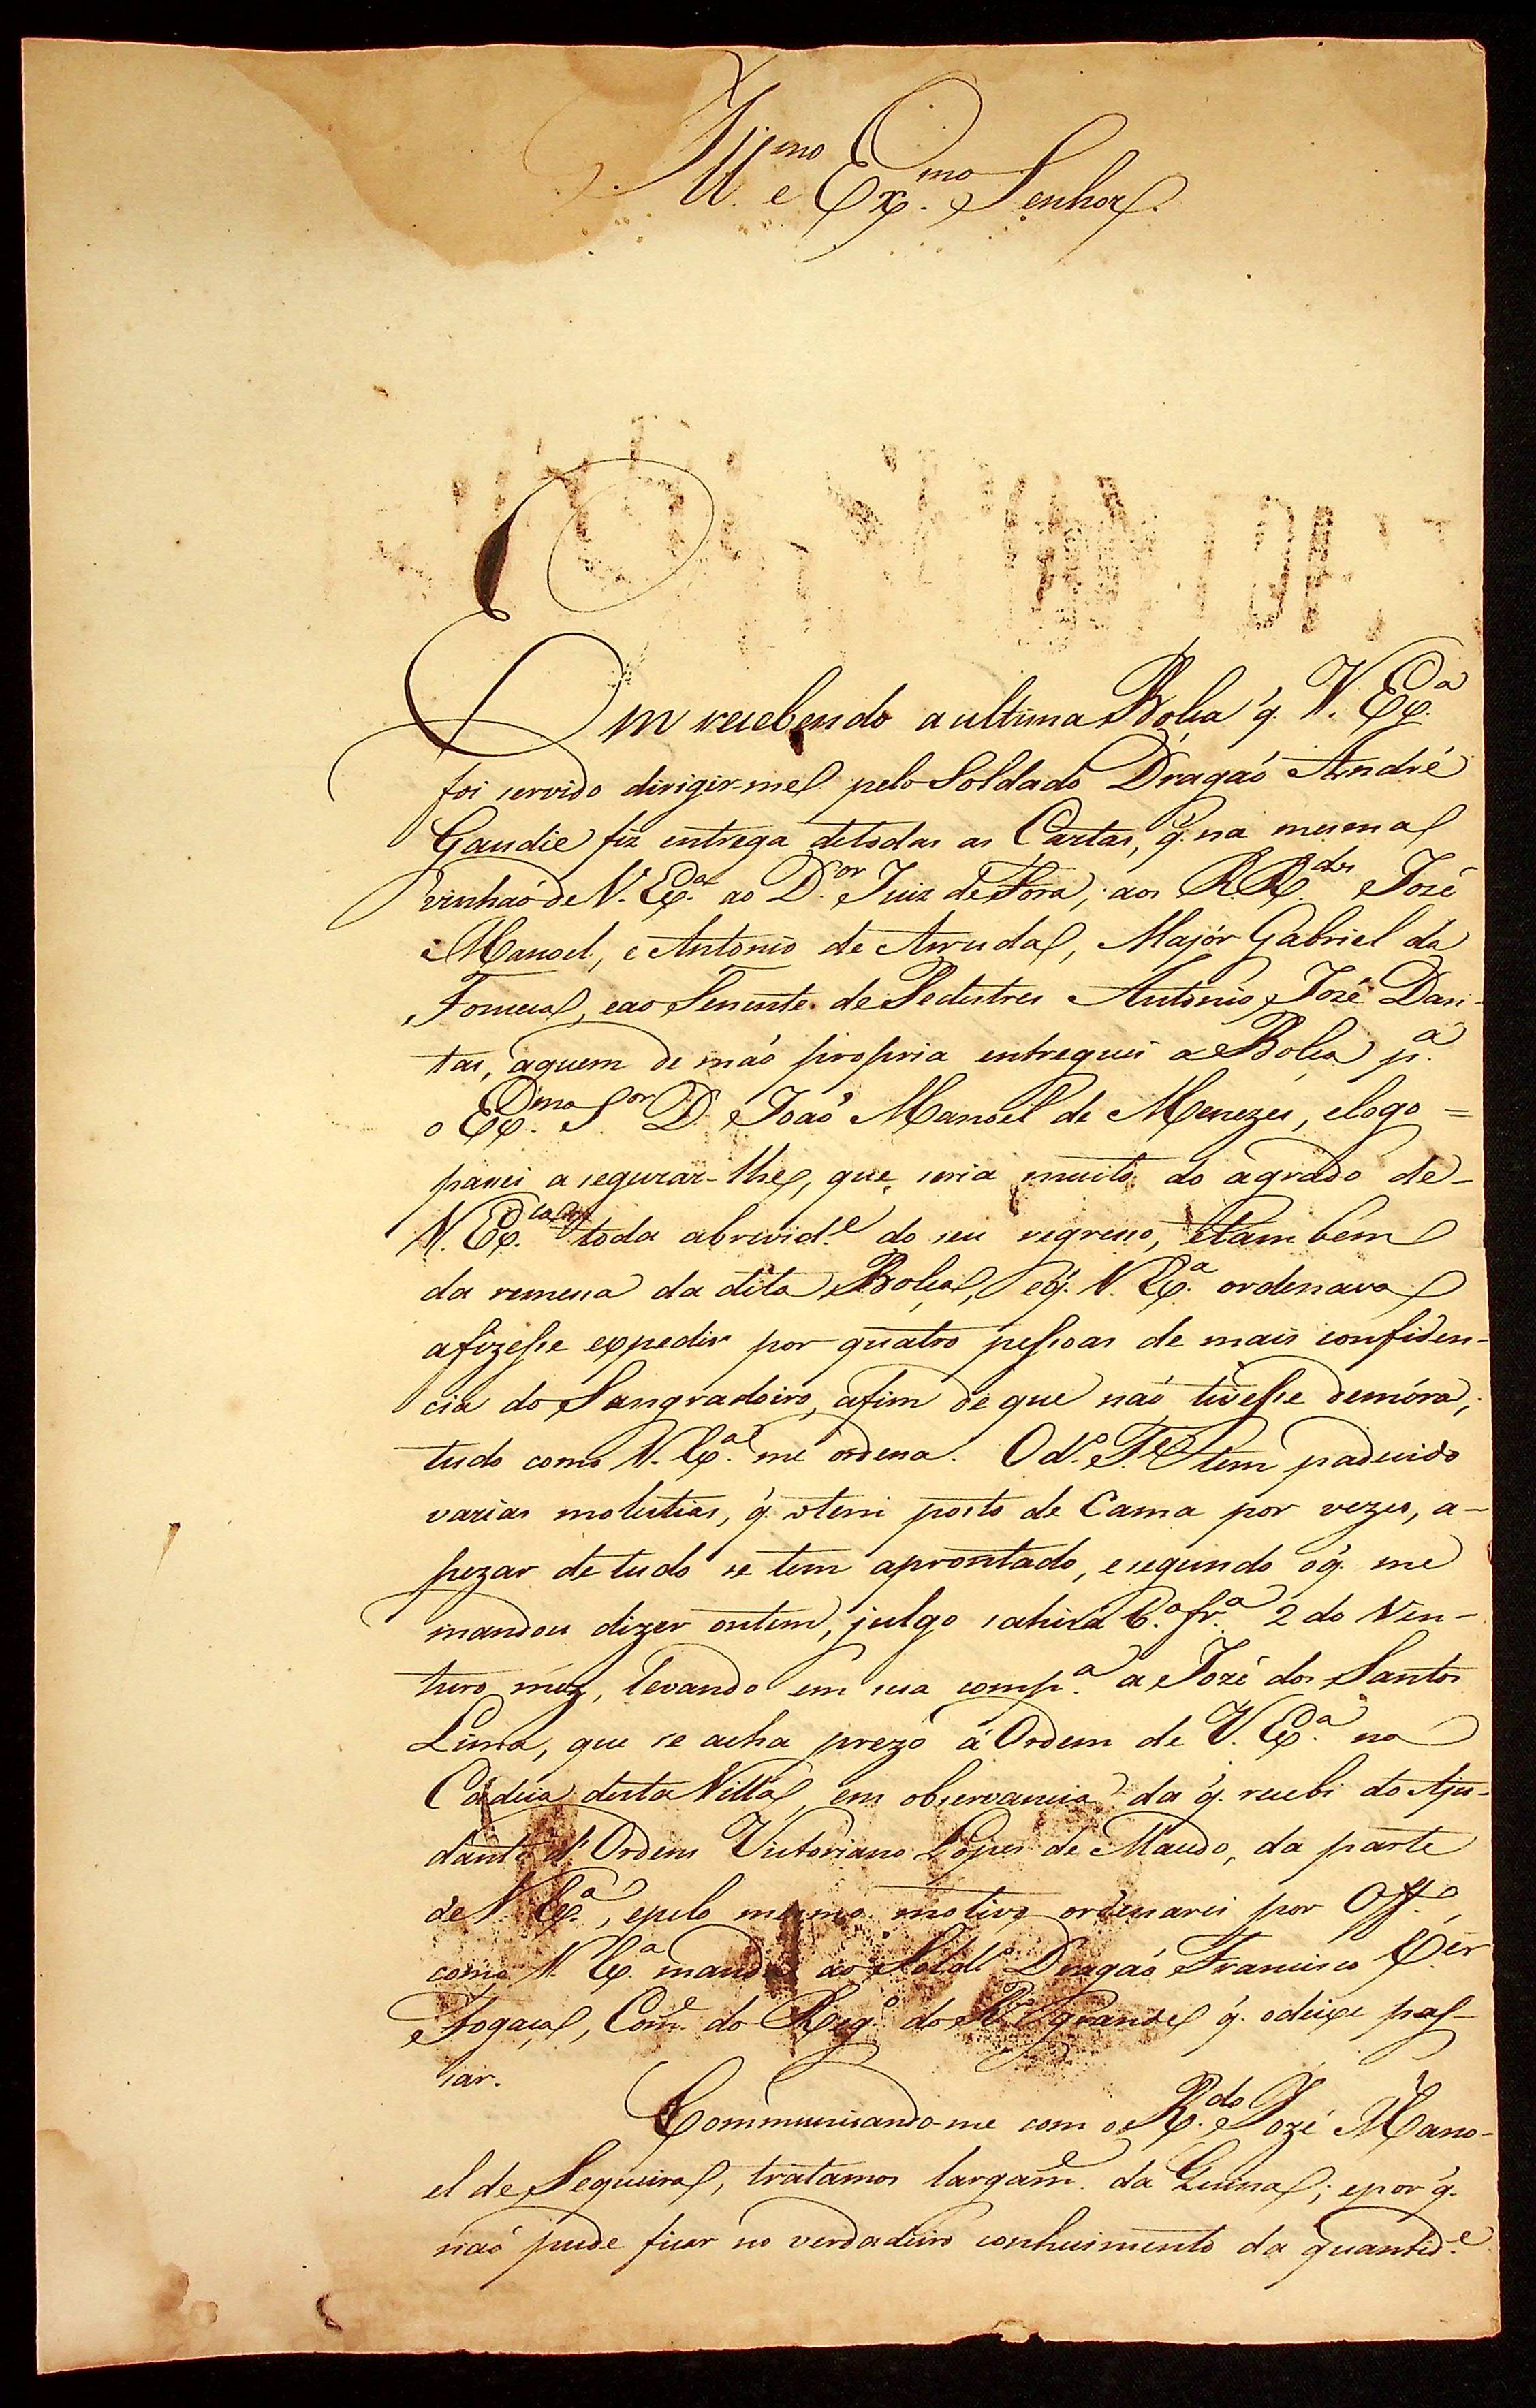 Ill.mo e Ex.mo Senhor.
Em recebendo a ultima Bolça q̃. V. Ex.a
foi servido dirigir-me pelo Soldado Dragaõ André
Gaudie fiz entrega detodas as Cartas, q̃. na mesma
vinhaõ de V. Ex.a ao D.or Juiz de Fora, aos R.R.dos José
Manoel, e Antonio de Arruda, Majór Gabriel da
Fonceca, eao Tenente de Pedestres Antonio José Dan-
tas, aquem de maõ propria entreguei a Bolça p.a
o Ex.mo S.or D. Joaõ Manoel de Menezes, elogo =
passei a segurar-lhe, que seria muito do agrado de-
V. Ex.cia toda abrevid.e do seu regresso, etambem
da remessa da dita Bolça, eq̃. V. Ex.a ordenava
afizesse expedir por quatro pessoas de mais confiden-
cia do Sangradoiro, afim de que naõ tivesse demóra;
tudo como V. Ex.a me ordena. O d.o T.e tem padecido
varias molestias, q̃. otem posto de Cama por vezes, a-
pezar de tudo se tem aprontado, esegundo oq̃. me
mandou dizer ontem, julgo sahirá 6.a fr.a 2 do Ven-
turo mez, levando em sua comp.a a José dos Santos
Lima, que se acha prezo á Ordem de V. Ex.a na
Cadeia desta Villa, em observancia da q̃. recebi do Aju-
dante d'Ordens Victoriano Lopes de Macedo, da parte
de V. Ex.a, epelo mesmo motivo ordenarei por Off.o,
como V. Ex.a manda ao Sold.o Dragaõ Francisco X.er
Fogaça, Com.e do Reg.o do R.o grande q̃. odeixe pas-
sar.
Communicando-me com o R.do José Mano-
el de Sequeira, tratamos largam.e da Quina; epor q̃.
naõ pude ficar no verdadeiro conhecimento da quantid.e